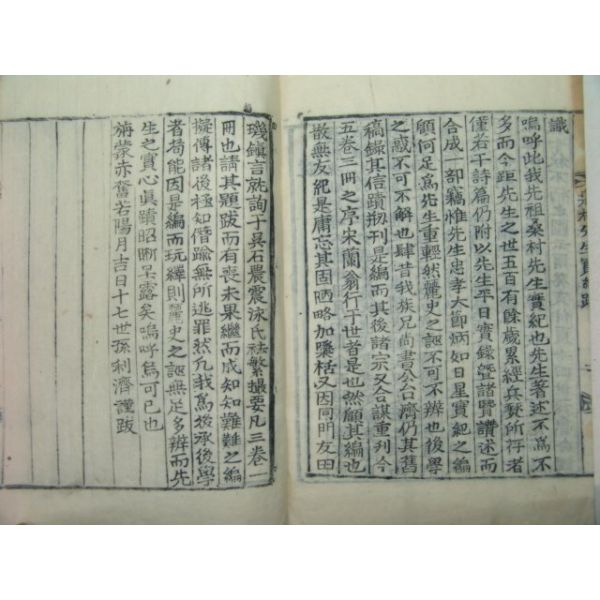 識
嗚呼此我先祖桑村先生實紀也先生著述不爲不
多而今距先生之世五百有餘歲累經兵燹所存者
僅若干詩篇仍附以先生平日實錄曁諸賢讚述而
合成一部竊惟先生忠孝大節炳如日星實紀之編
顧何足爲先生重輕然麗史之誣不可不辨也後學
之惑不可不解也肆昔我族兄尚書公台濟仍其舊
稿鋟其信蹟刱刊是編而其後諸宗又合謀重刊今
五卷三冊之序宋蘭翁行于世者是也然顧其編也
故無友紀是庸忘其固陋略加櫽栝又因同門友田
璣鎭言就詢于吳石農震泳氏祛繁撮要凡三卷一
冊也請其題跋而有喪未果繼而咸知知難難之編
擬傳諸後極知僭踰無所逃罪然凡我爲後承後學
者苟能因是編而玩繹則麗史之誣無足多辨而先
生之實心眞蹟昭晰呈露矣嗚呼烏可已也
旃蒙赤奮若陽月吉日十七世孫利濟謹跋